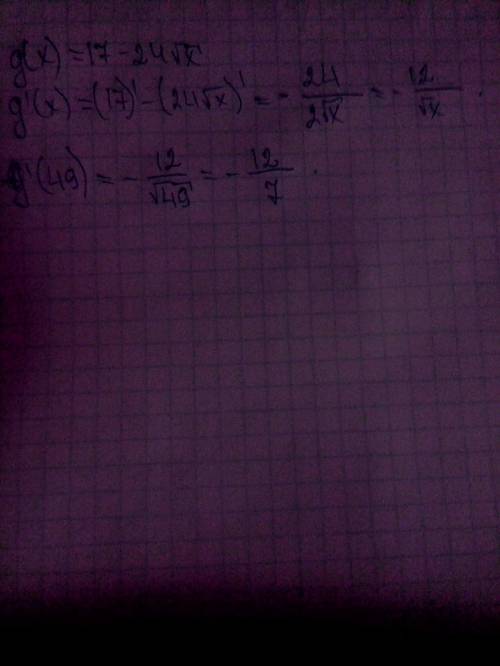 g(x) = 17 - 24√x
g'(x) = (17)' - (24√x)' = - 24/2√x = - 12/√x .
g'(49) = - 12/√49 = - 12/7 .